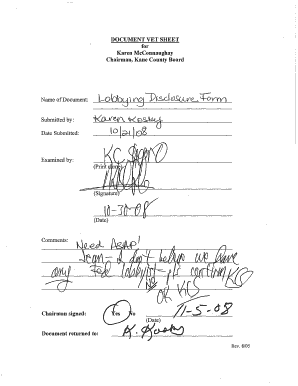 DOCUMENT VET SHEET
for
Karen McConnaughay
Chairman, Kane County Board
Name of Document: Lobbying Disclosure Form
Submitted by: Karen Kosky
Date Submitted: 10/21/08
Examined by: KC
(Print name)
(Signature)
10-30-08
(Date)
Comments: Need ASAP!
I don't believe we have
any Fed lobbyist - pls confirm KC
No
OK KC
Chairman signed: Yes No 11-5-08
(Date)
Document returned to: K. Kosky
Rev. 8/05